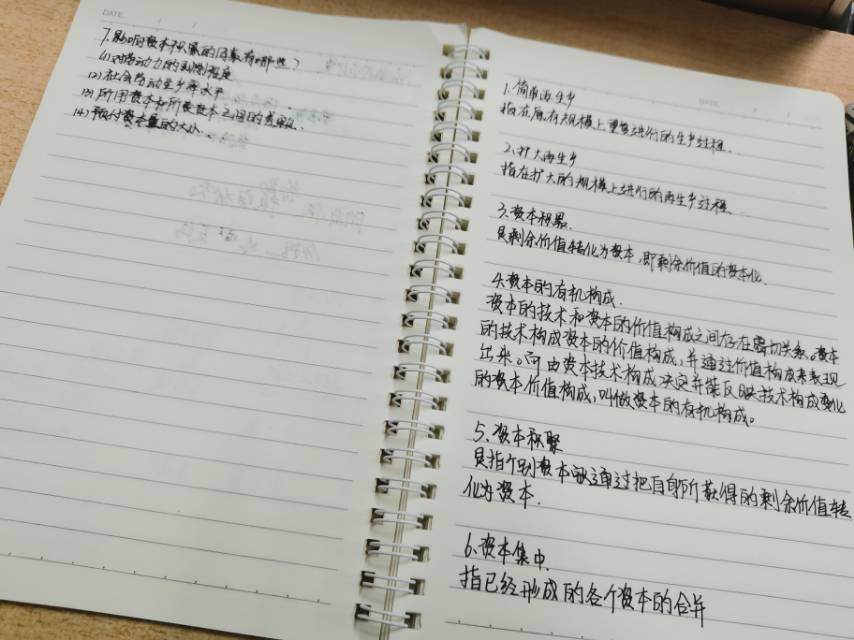 DATE
7.影响资本积累的因素有哪些?
(1)对劳动力的剥削程度
(2)社会劳动生产率水平
(3)所用资本和所费资本之间的差额.
(4)预付资本量的大小.
DATE
1.简单再生产
指在原有规模上重复进行的生产过程.
2.扩大再生产
指在扩大的规模上进行的再生产过程
3.资本积累.
是剩余价值转化为资本,即剩余价值的资本化.
4.资本的有机构成.
资本的技术和资本的价值构成之间存在密切关系。资本
的技术构成资本的价值构成,并通过价值构成来表现
出来。可由资本技术构成决定并能反映技术构成变化
的资本价值构成,叫做资本的有机构成。
5.资本积聚
是指个别资本通过把自身所获得的剩余价值转
化为资本.
6.资本集中.
指已经形成的各个资本的合并